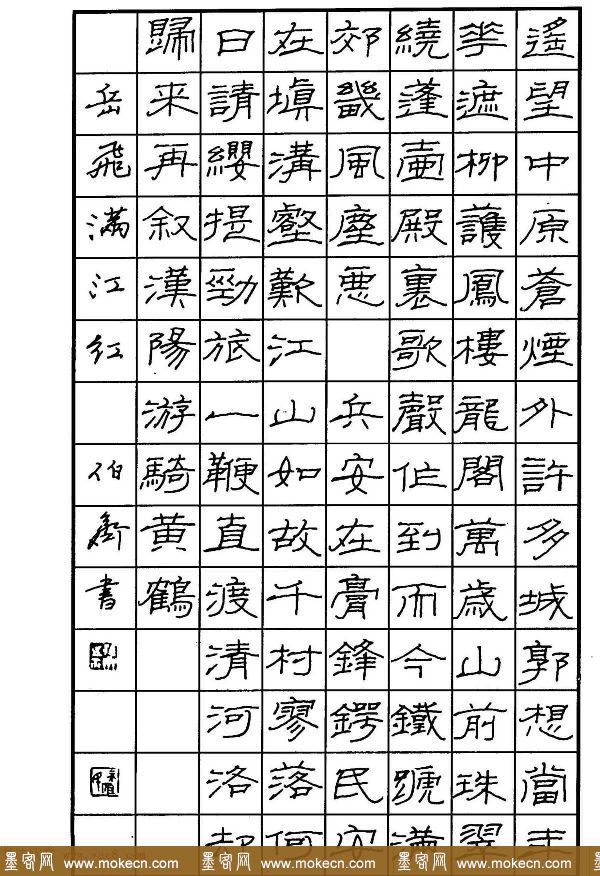 遙望中原蒼煙外許多城郭想當年
華遮柳護鳳樓龍閣萬歲山前珠翠
繞蓬壷殿裏歌聲作到而今鐵蹏滿
郊畿風塵悪 兵安在膏鋒鍔民安
在塡溝壑歎江山如故千村寥落何
日請纓提勁旅一鞭直渡清河洛却
歸来再叙漢陽游騎黃鶴
岳飛滿江紅 伯 書
墨客网 www.mokecn.com 墨客网 www.mokecn.com 墨客网 www.mokecn.com